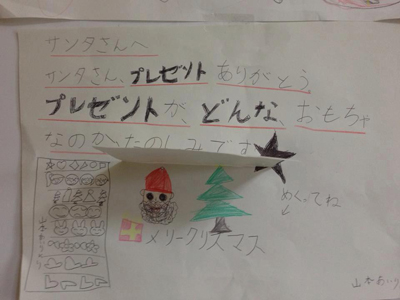 サンタさんへ
サンタさん、プレゼントありがとう
プレゼントが、どんな、おもちゃ
なのかたのしみです
めくってね
↓
メリークリスマス